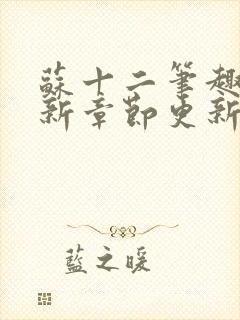 蘇十二筆趣
新章節更新
藍之暖